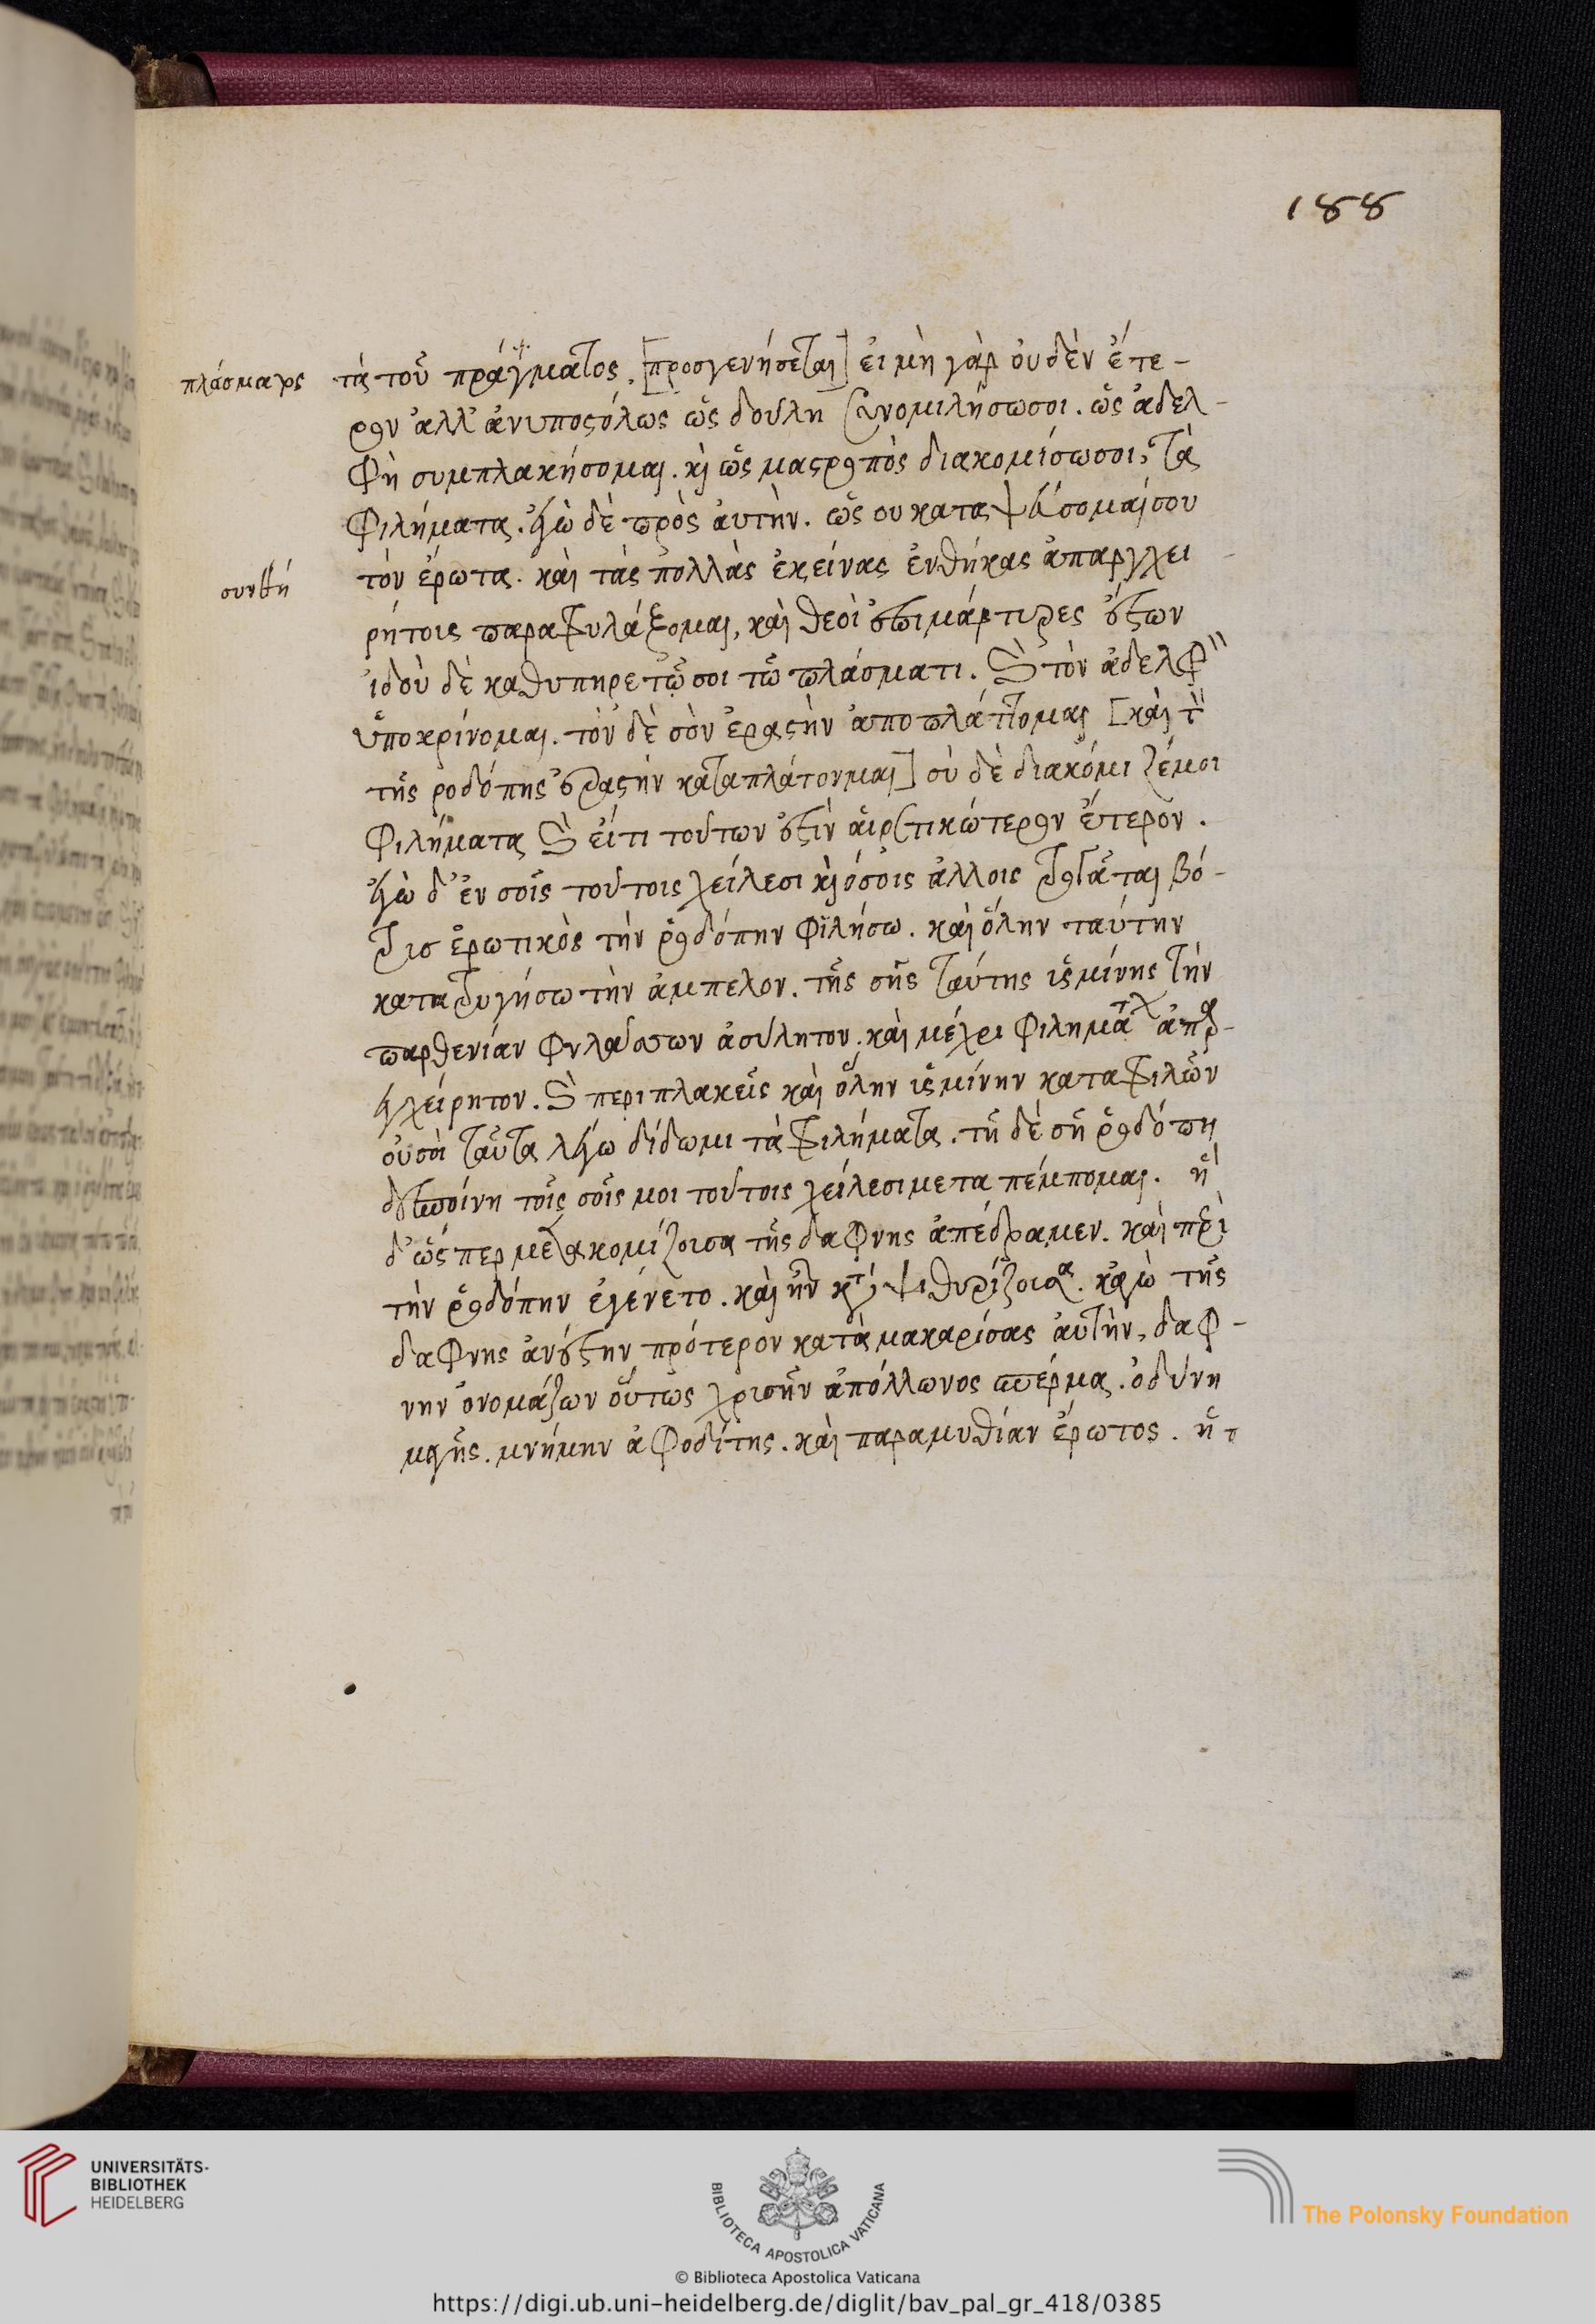 188
πλάσματος τὰ τοῦ πράγματος. [προσγενήσεται] εἰ μὴ γὰρ οὐδὲν ἕτε-
ρον ἀλλ' ἀνυποστόλως ὡς δούλη συνομιλήσωσοι. ὡς ἀδελ-
φὴ συμπλακήσομαι. κὶ ὡς μαστροπὸς διακομίσωσοι, τὰ
φιλήματα. ἐγὼ δὲ πρὸς αὐτὴν. ὡς ου καταψεύσομαί σου
συνθή τὸν ἔρωτα. καὶ τὰς πολλὰς ἐκείνας ἐνθήκας ἀπαρεγχει
ρήτοις παραφυλάξομαι, καὶ θεοὶ ἐπιμάρτυρες ἔστων
ἰδοὺ δὲ καθυπηρετῶ σοι τῶ πλάσματι. καὶ τὸν ἀδελφὸν
ὑποκρίνομαι. τὸν δὲ σὸν ἐραστὴν ἀποπλάττομαι [καὶ τὸν
τῆς ροδόπης ἐραστὴν καταπλάτονμαι] σὺ δὲ διακόμιζέ μοι
φιλήματα καὶ εἴτι τούτων ἐστὶν αἱρετικώτερον ἕτερον.
ἐγὼ δ' ἐν σοῖς τούτοις χείλεσι κὶ ὅσοις ἄλλοις τρυγᾶται βό-
τρις ἐρωτικὸς τὴν ῥοδόπην φιλήσω. καὶ ὅλην ταύτην
κατατρυγήσω τὴν ἄμπελον. τῆς σῆς ταύτης ἰσμίνης τὴν
παρθενίαν φυλάσσων ἀσύλητον. καὶ μέχρι φιλημάτων ἀπαρ-
εγχείρητον. καὶ περιπλακεὶς καὶ ὅλην ἰσμίνην καταφιλῶν
οὐ σὰ ταῦτα λέγω δίδωμι τὰ φιλήματα. τῆ δὲ σῆ ῥοδόπη
δεσποίνη τοῖς σοῖς μοι τούτοις χείλεσι μετα πέμπομαι. ἡ
δ' ὥς περ μετακομίζουσα τῆς δαφνης ἀπέδραμεν. καὶ περὶ
τὴν ῥοδόπην ἐγένετο. καὶ ἦν κάτι ψιθυρίζουσα. κἀγὼ τῆς
δαφνης ἀνέστην πρότερον κατὰ μακαρίσας αὐτὴν, δαφ-
νην ὀνομάζων οὕτως χρυσῆν ἀπόλλωνος σπέρμα. ὀδύνη
μῆς. μνήμην ἀφροδίτης. καὶ παραμυθίαν ἔρωτος. ἥ τ
UNIVERSITÄTS-
BIBLIOTHEK
HEIDELBERG
BIBLIOTECA APOSTOLICA VATICANA
The Polonsky Foundation
© Biblioteca Apostolica Vaticana
https://digi.ub.uni-heidelberg.de/diglit/bav_pal_gr_418/0385